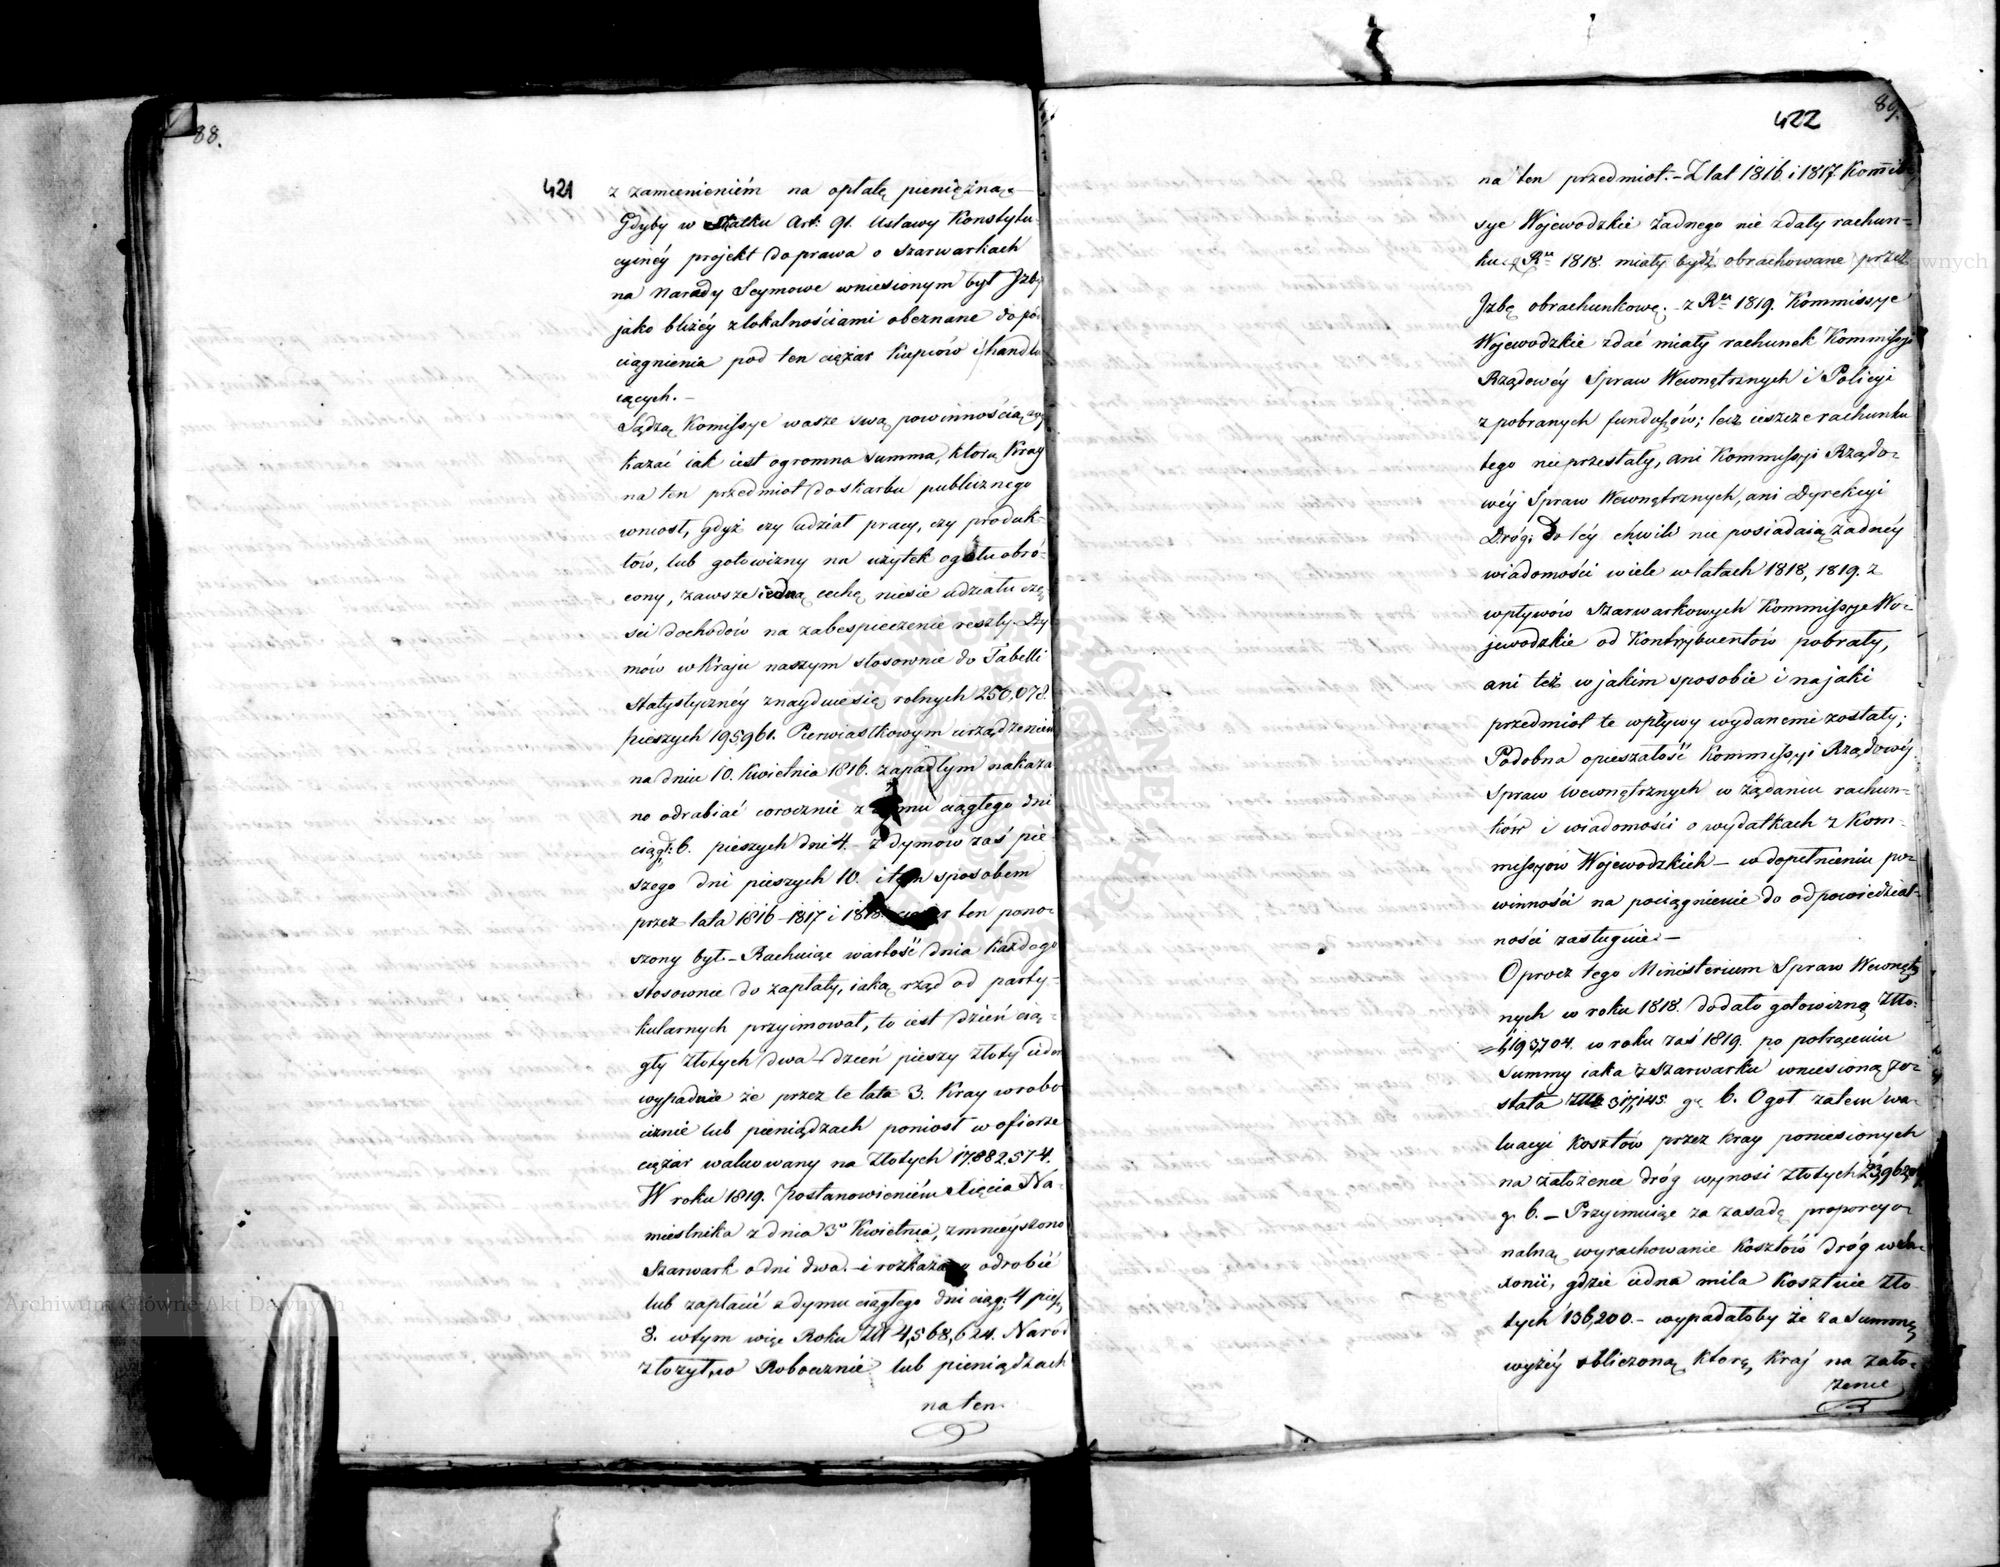 88.
421
z zamienieniém na opłatę pieniężną.—
Gdyby w skutku Art. 91. Ustawy Konstytu-
cyinéy projekt do prawa o szarwarkach
na Narady Seymowe wniesionym był Izby
jako bliżéy z lokalnościami obeznane do po-
ciągnienia pod ten ciężar kupców i handlu-
iących.—
Sądzą Kommissye wasze swą powinnością
kazać iak iest ogromna summa, którą Kray
na ten przedmiot do skarbu publicznego
wniosł, gdyż czy udział pracy, czy produk-
tów, lub gotowizny na użytek ogółu obró-
cony, zawsze iedną cechę niesie udziału czę-
ści dochodów na zabespieczenie reszty. Dy-
mów w Kraju naszym stosownie do Tabelli
statystycznéy znayduie się rolnych 256,078.
pieszych 195961. Pierwiastkowym urządzeniem
na dniu 10. Kwietnia 1816. zapadłym nakaza-
no odrabiać corocznie z dymu ciągłego dni
ciągł: 6. pieszych dni 4.— z dymów zaś pie-
szego dni pieszych 10. i tym sposobem
przez lata 1816 – 1817 i 1818. ciężar ten pono-
szony był.— Rachuiąc wartość dnia każdego
stosownie do zapłaty, iaką rząd od party-
kularnych przyimował, to iest dzień cią-
gły złotych dwa – dzień pieszy złoty ieden
wypadnie że przez te lata 3. Kray w robo-
ciznie lub pieniądzach poniosł w ofierze
ciężar waluowany na Złotych 17,882,574.
W roku 1819. postanowieniém Xięcia Na-
miestnika z dnia 3º Kwietnia, zmnieyszono
Szarwark o dni dwa.— i rozkazano odrobić
lub zapłacić z dymu ciągłego dni ciąg: 4 piesz,
8. w tym więc Roku Zł 4,568,624. Naród
złożył, w Robociznie lub pieniądzach
na ten
89.
422
na ten przedmiot.— Z lat 1816 i 1817. Kommis-
sye Wojewodzkie żadnego nie zdały rachun-
ku z Ru 1818. miały bydź obrachowane przez
Izbę obrachunkową.— z Ru 1819. Kommissye
Wojewodzkie zdać miały rachunek Kommissyi
Rządowéy Spraw Wewnętrznych i Policyi
z pobranych funduszów; lecz ieszcze rachunku
tego nie przesłały, ani Kommissyi Rządo-
wéy Spraw Wewnętrznych, ani Dyrekcyi
Dróg, Do téy chwili nie posiadaią żadnéy
wiadomości wiele w latach 1818, 1819. z
wpływów szarwarkowych Kommissye Wo-
jewodzkie od Kontrybuentów pobrały,
ani też w jakim sposobie i na jaki
przedmiot te wpływy wydanemi zostały;
Podobna opieszałość Kommissyi Rządowéy
Spraw Wewnętrznych w żądaniu rachun-
ków i wiadomości o wydatkach z Kom-
missyów Wojewodzkich — w dopełnieniu po-
winności na pociągnienie do odpowiedzial-
ności zasługuie.—
Oprócz tego Ministerium Spraw Wewnętrz
nych w roku 1818. dodało gotowizną Złto:
1,193,704. w roku zaś 1819. po potrąceniu
Summy iaka z Szarwarku wniesioną zo-
stała 317,145 g. 6. Ogół zatem wa-
luacyi kosztów przez kray poniesionych
na założenie dróg wynosi złotych
g. 6.— Przyimuiąc za zasadę proporcyo-
nalną wyrachowanie kosztów dróg w Sa-
xonii, gdzie iedna mila kosztuie zło-
tych 136,200.— wypadałoby że za Summę
wyżéy obliczoną, którą, kraj na zało-
żenie
Archiwum Główne Akt Dawnych